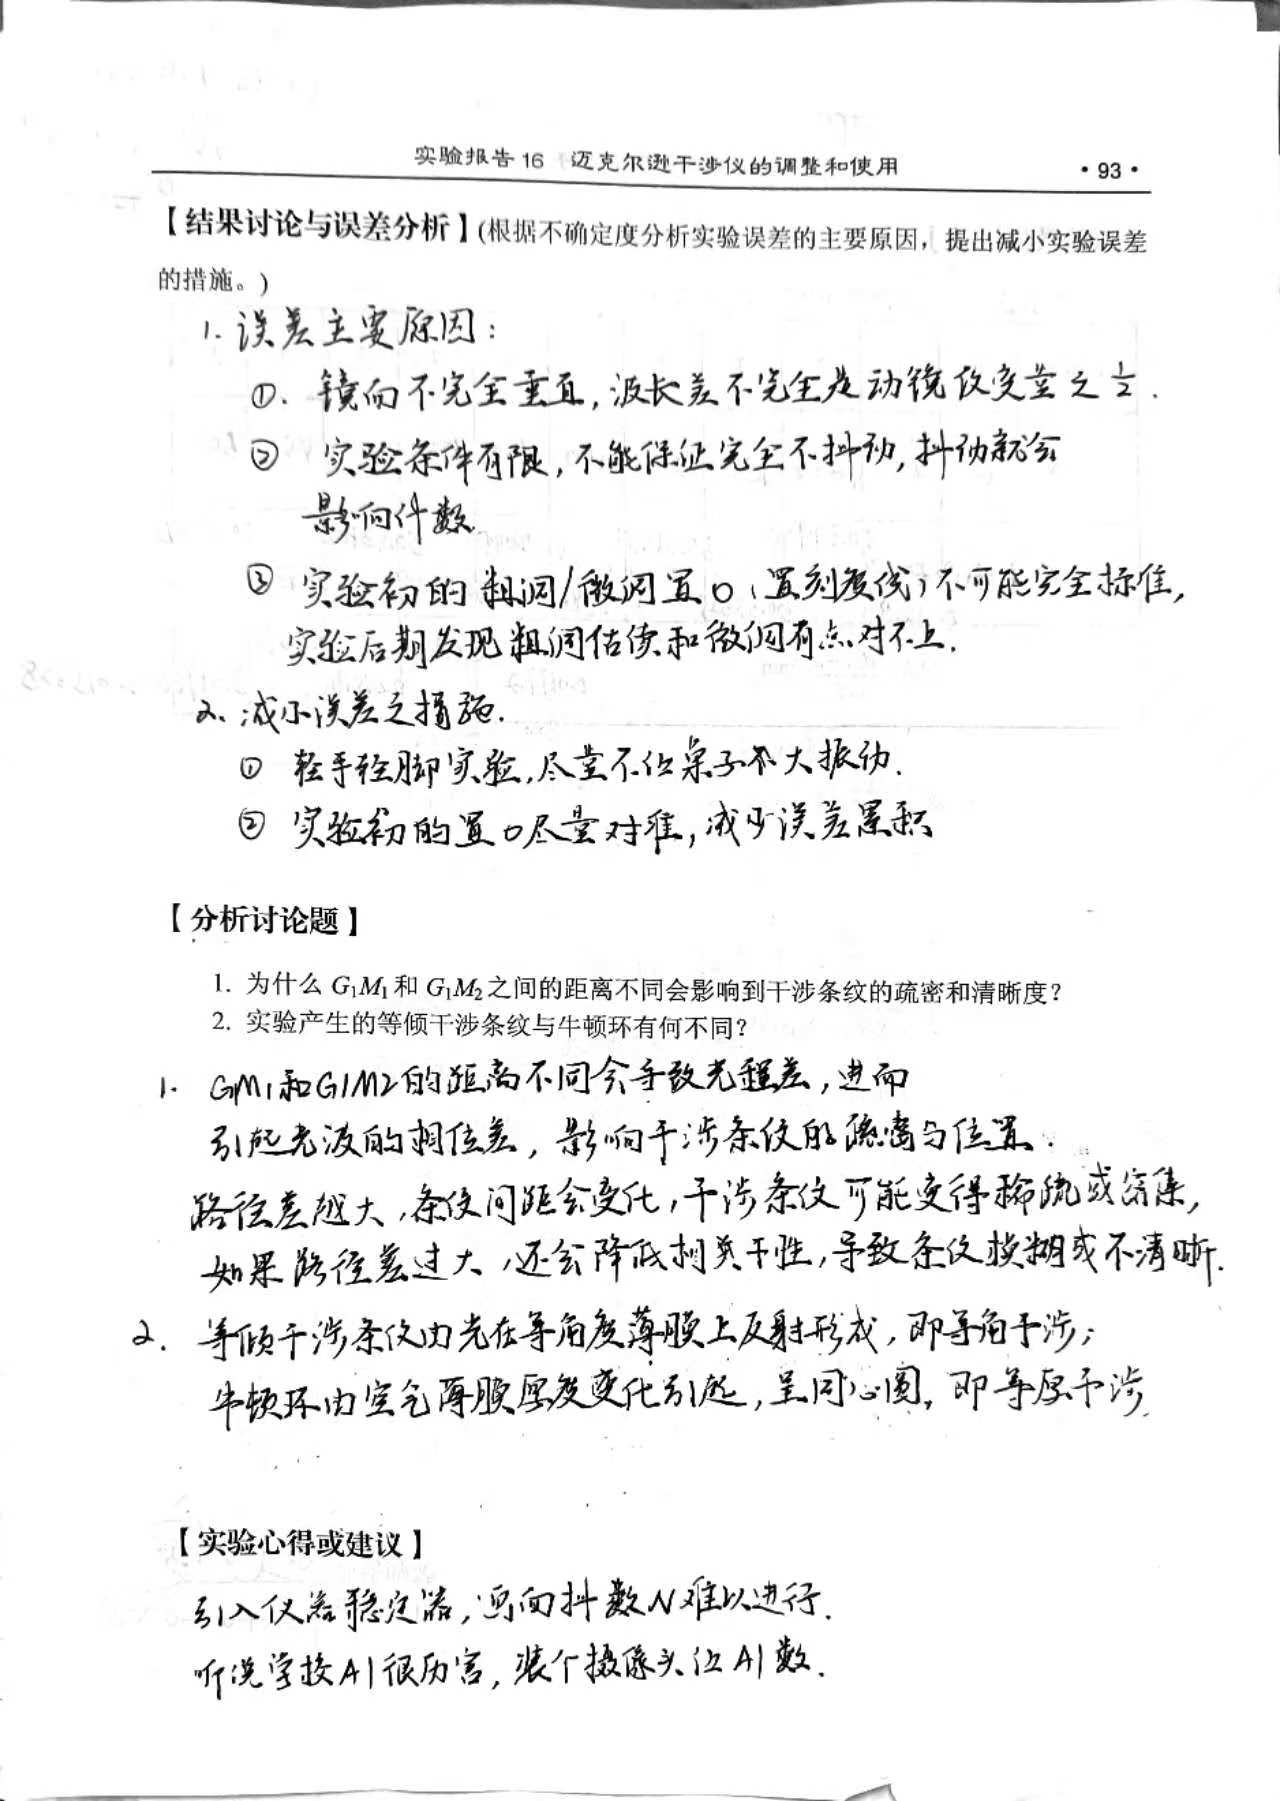 实验报告16 迈克尔逊干涉仪的调整和使用 ·93·
【结果讨论与误差分析】(根据不确定度分析实验误差的主要原因，提出减小实验误差
的措施。)
1. 误差主要原因：
①. 镜面不完全垂直，波长差不完全是动镜改变量之1/2.
② 实验条件有限，不能保证完全不抖动，抖动就会
影响计数.
③ 实验初的粗调/微调置0（置刻度线）不可能完全标准，
实验后期发现粗调估读和微调有点对不上.
2、减小误差之措施.
① 轻手轻脚实验，尽量不让桌子不大振动.
② 实验初的置0尽量对准，减少误差累积
【分析讨论题】
1. 为什么G₁M₁和G₁M₂之间的距离不同会影响到干涉条纹的疏密和清晰度?
2. 实验产生的等倾干涉条纹与牛顿环有何不同?
1. GM1和G1M2的距离不同会导致光程差，进而
引起光波的相位差，影响干涉条纹的疏密与位置.
路径差越大，条纹间距会变化，干涉条纹可能变得稀疏或密集，
如果路径差过大，还会降低相关干性，导致条纹模糊或不清晰.
2. 等倾干涉条纹由光在等角度薄膜上反射形成，即等角干涉；
牛顿环由空气薄膜厚度变化引起，呈同心圆，即等厚干涉.
【实验心得或建议】
引入仪器稳定器，画面抖数N难以进行.
听说学校AI很厉害，装个摄像头让AI数.